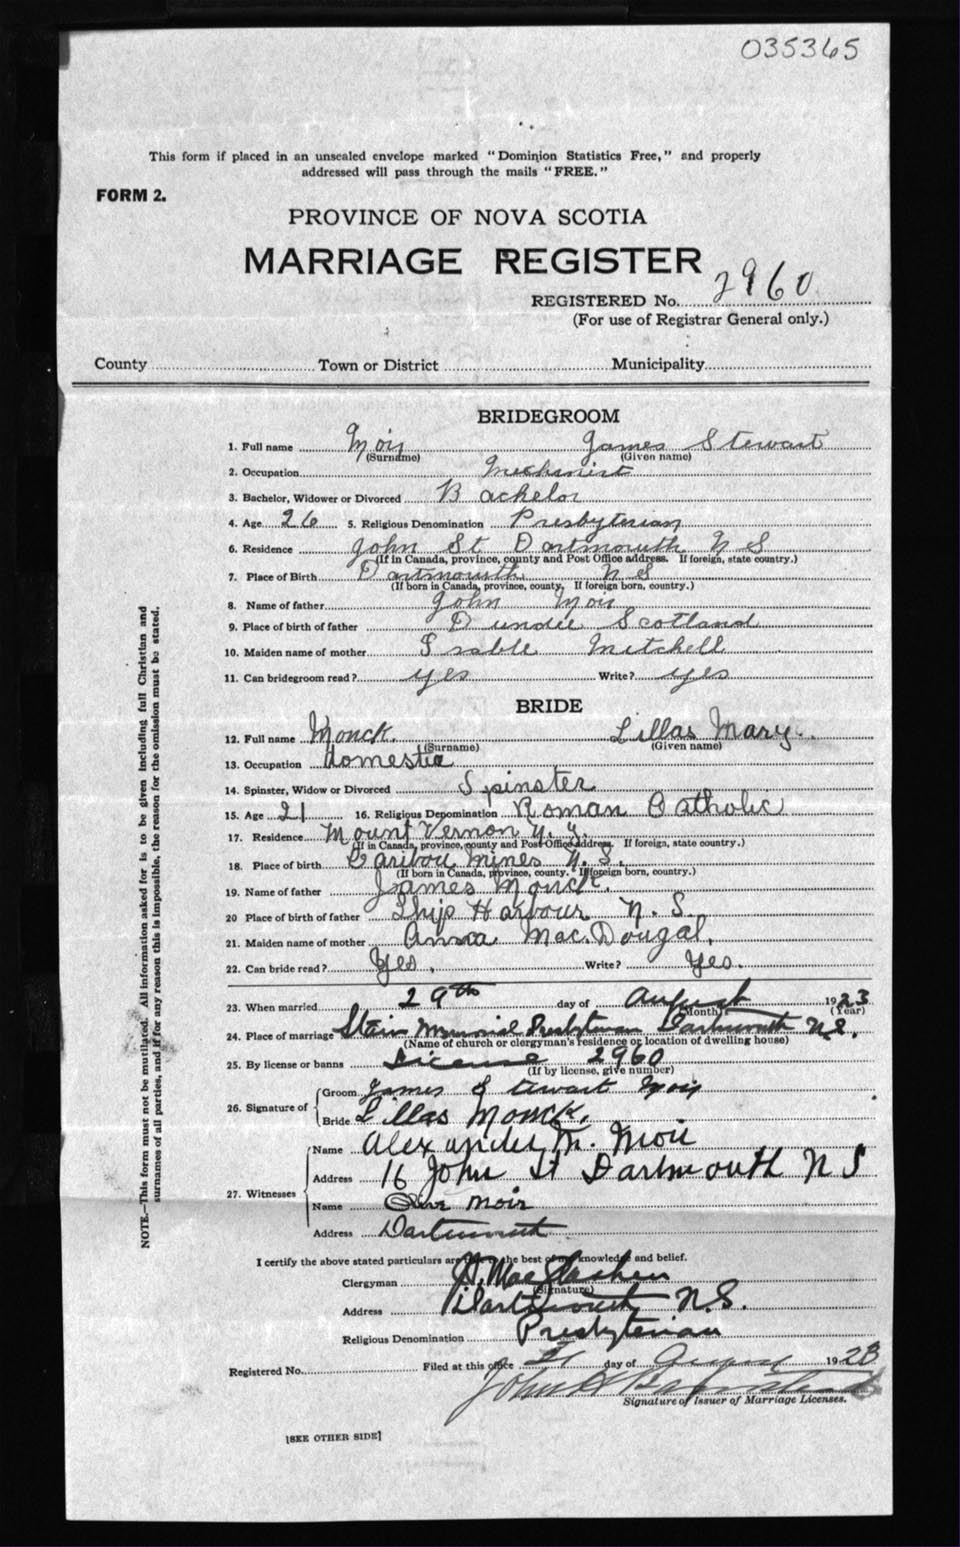 035365
This form if placed in an unsealed envelope marked "Dominion Statistics Free," and properly
addressed will pass through the mails "FREE."
FORM 2.
PROVINCE OF NOVA SCOTIA
MARRIAGE REGISTER
REGISTERED No. 2960
(For use of Registrar General only.)
County Town or District Municipality
BRIDEGROOM
1. Full name Moir James Stewart
(Surname) (Given name)
2. Occupation Mechanist
3. Bachelor, Widower or Divorced Bachelor
4. Age 26 5. Religious Denomination Presbyterian
6. Residence John St Dartmouth N S
(If in Canada, province, county and Post Office address. If foreign, state country.)
7. Place of Birth Dartmouth N S
(If born in Canada, province, county. If foreign born, country.)
8. Name of father John Moir
9. Place of birth of father Dundee Scotland
10. Maiden name of mother Isable Mitchell
11. Can bridegroom read? yes Write? yes
BRIDE
12. Full name Monck. Lillas Mary.
(Surname) (Given name)
13. Occupation domestic
14. Spinster, Widow or Divorced Spinster
15. Age 21 16. Religious Denomination Roman Catholic
17. Residence Mount Vernon N. Y.
(If in Canada, province, county and Post Office address. If foreign, state country.)
18. Place of birth Caribou Mines N. S.
(If born in Canada, province, county. If foreign born, country.)
19. Name of father James Monck.
20 Place of birth of father Ship Harbour N. S.
21. Maiden name of mother Anna Mac.Dougal.
22. Can bride read? Yes. Write? Yes.
23. When married 29th day of August 1923
(Month) (Year)
24. Place of marriage Stairs Memorial Presbyterian Dartmouth N.S.
(Name of church or clergyman's residence or location of dwelling house)
25. By license or banns License 2960
(If by license, give number)
26. Signature of Groom James Stewart Moir
Bride Lillas Monck.
27. Witnesses Name Alexander M. Moir
Address 16 John St Dartmouth N S
Name Moir
Address Dartmouth
I certify the above stated particulars are to the best of my knowledge and belief.
Clergyman
(Signature)
Address Dartmouth N.S.
Religious Denomination Presbyterian
Registered No. Filed at this office day of 1923
Signature of Issuer of Marriage Licenses.
[SEE OTHER SIDE]
NOTE.—This form must not be mutilated. All information asked for is to be given including full Christian and
surnames of all parties, and if for any reason this is impossible, the reason for the omission must be stated.